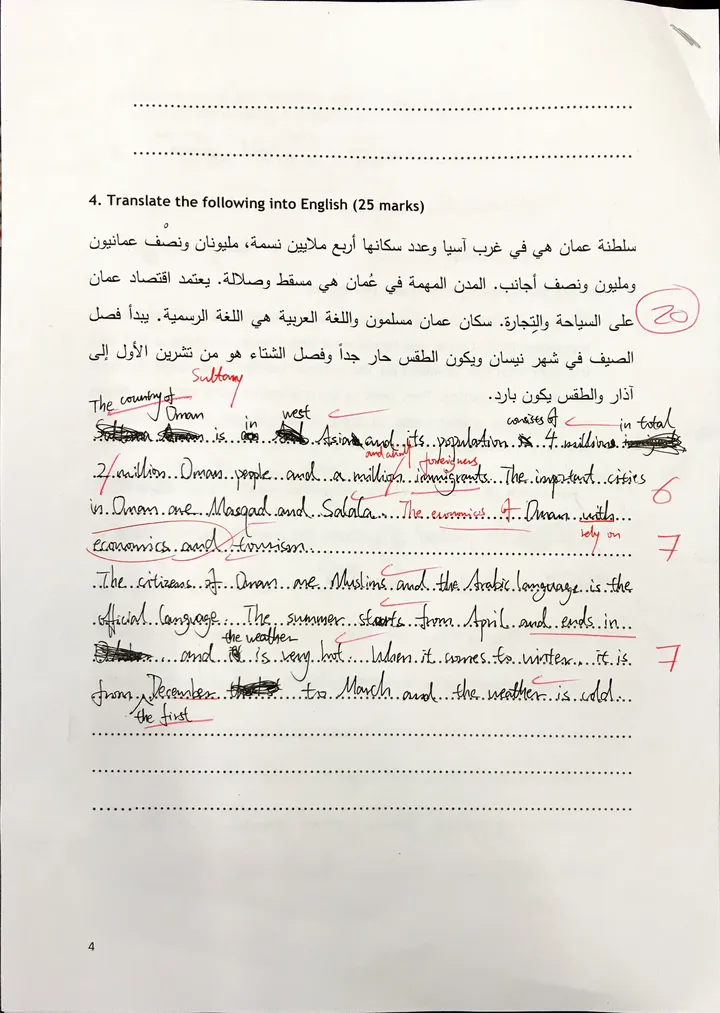 4. Translate the following into English (25 marks)
سلطنة عمان هي في غرب آسيا وعدد سكانها أربع ملايين نسمة، مليونان ونصف عمانيون
ومليون ونصف أجانب. المدن المهمة في عُمان هي مسقط وصلالة. يعتمد اقتصاد عمان
على السياحة والتِجارة. سكان عمان مسلمون واللغة العربية هي اللغة الرسمية. يبدأ فصل
20
الصيف في شهر نيسان ويكون الطقس حار جداً وفصل الشتاء هو من تشرين الأول إلى
آذار والطقس يكون بارد.
Sultany
The country of Oman is in west Asia and its population consists of 4 millions in total
and a half foreigners
2 million Oman people and a million immigrants. The important cities
6
in Oman are Masqad and Salala. The economics of Oman with
rely on
economics and tourism.
7
The citizens of Oman are Muslims and the Arabic language is the
official language. The summer starts from April and ends in
and the weather is very hot. When it comes to winter, it is
7
from the first December to March and the weather is cold.
4